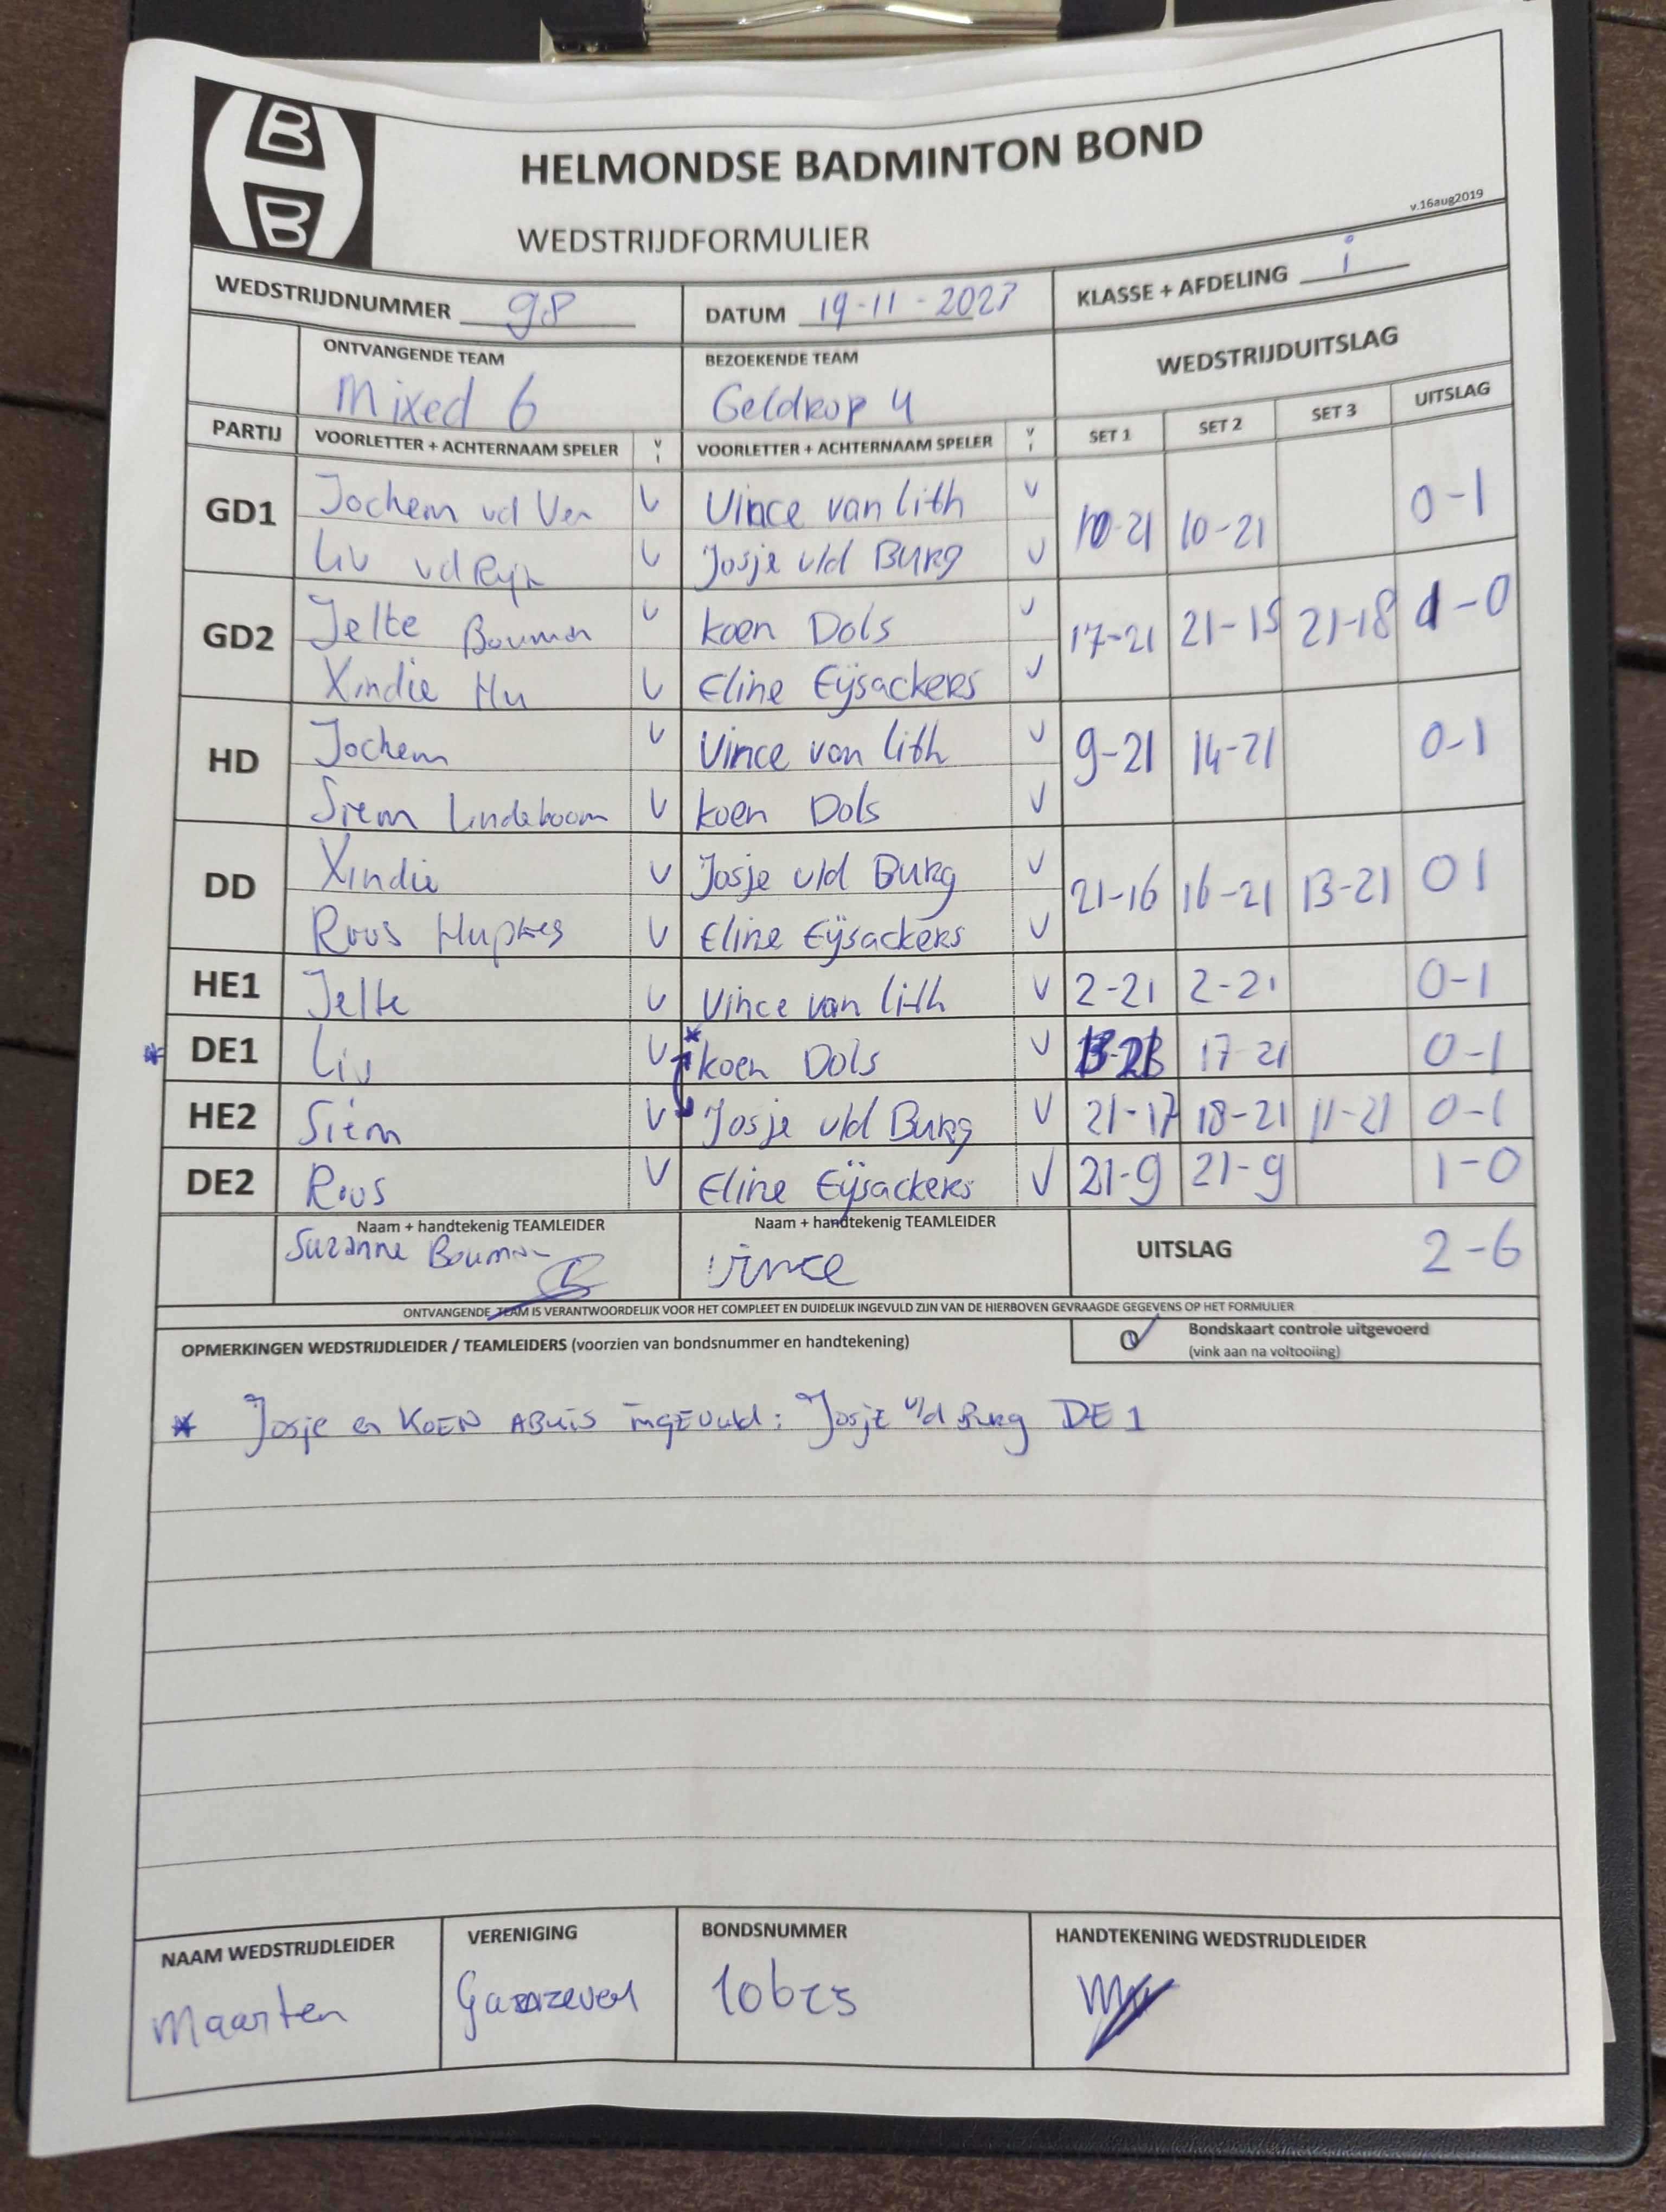 B
B
HELMONDSE BADMINTON BOND
WEDSTRIJDFORMULIER
v.16aug2019
WEDSTRIJDNUMMER 98 DATUM 19-11-2023 KLASSE + AFDELING i
ONTVANGENDE TEAM BEZOEKENDE TEAM WEDSTRIJDUITSLAG
Mixed 6 Geldrop 4
PARTIJ VOORLETTER + ACHTERNAAM SPELER V I VOORLETTER + ACHTERNAAM SPELER V I SET 1 SET 2 SET 3 UITSLAG
GD1 Jochem vd Ven V Vince van lith V 10-21 10-21 0-1
Liv vd Rijn V Josje v/d Burg V
GD2 Jelte Bouman V koen Dols V 17-21 21-15 21-18 1-0
Xindie Hu V Eline Eijsackers V
HD Jochem V Vince van lith V 9-21 14-21 0-1
Siem Lindeboom V koen Dols V
DD Xindie V Josje v/d Burg V 21-16 16-21 13-21 0 1
Roos V Eline Eijsackers V
HE1 Jelte V Vince van lith V 2-21 2-21 0-1
* DE1 Liv V * koen Dols V 17-21 0-1
HE2 Siem V Josje v/d Burg V 21-17 18-21 11-21 0-1
DE2 Roos V Eline Eijsackers V 21-9 21-9 1-0
Naam + handtekenig TEAMLEIDER Naam + handtekenig TEAMLEIDER UITSLAG 2-6
Suzanne Bouman Vince
ONTVANGENDE TEAM IS VERANTWOORDELIJK VOOR HET COMPLEET EN DUIDELIJK INGEVULD ZIJN VAN DE HIERBOVEN GEVRAAGDE GEGEVENS OP HET FORMULIER
OPMERKINGEN WEDSTRIJDLEIDER / TEAMLEIDERS (voorzien van bondsnummer en handtekening)
Bondskaart controle uitgevoerd
(vink aan na voltooiing)
* Josje en KOEN ABUIS INGEVULD: JOSJE v/d Burg DE 1
NAAM WEDSTRIJDLEIDER VERENIGING BONDSNUMMER HANDTEKENING WEDSTRIJDLEIDER
Maarten